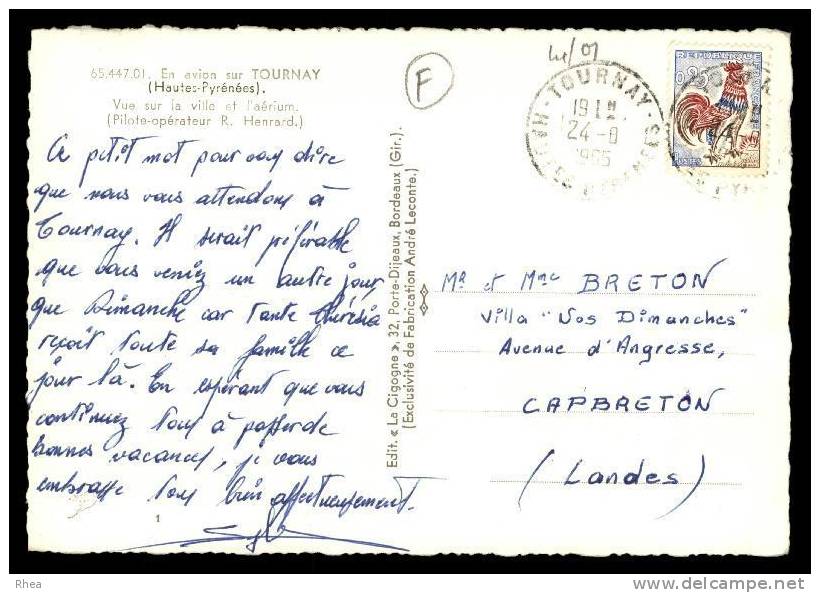 65.447.01. En avion sur TOURNAY
(Hautes-Pyrénées).
Vue sur la ville et l'aérium.
(Pilote-opérateur R. Henrard.)
Ce petit mot pour vous dire
que nous vous attendons à
Tournay. Il serait préférable
que vous veniez un autre jour,
que Dimanche car tante Thérésia
reçoit toute sa famille ce
jour là. En espérant que vous
continuez tous à passer de
bonnes vacances, je vous
embrasse tous bien affectueusement.
1
Edit. « La Cigogne », 32, Porte-Dijeaux, Bordeaux (Gir.).
(Exclusivité de Fabrication André Leconte.)
F
TOURNAY
HAUTES PYRENEES
19 H
24-8
REPUBLIQUE FRANÇAISE
0,25
POSTES
Mr et Mme BRETON
Villa "Nos Dimanches"
Avenue d'Angresse,
CAPBRETON
(Landes)
Rhea
delcampe.net